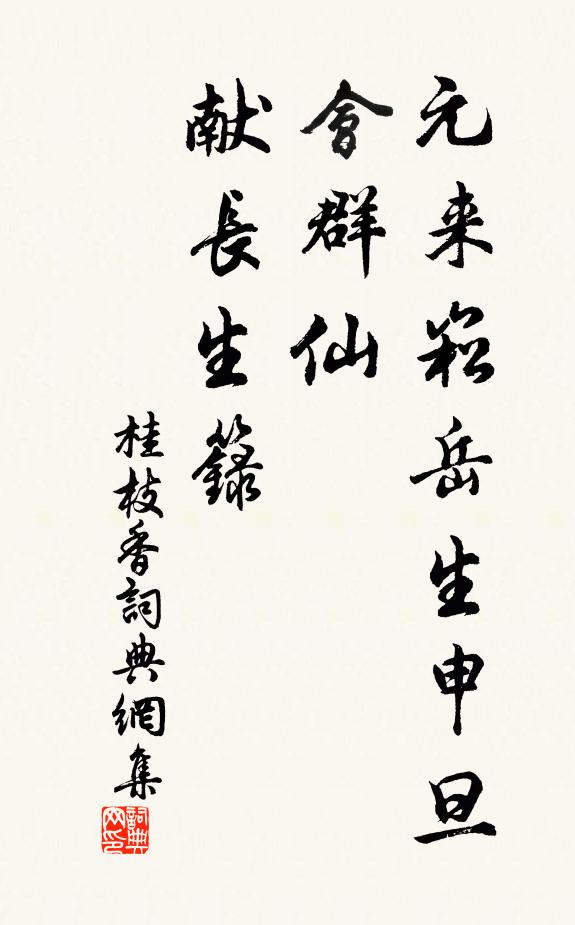 元来崧岳生申旦
會群仙
献長生籙
桂枝香詞典網集
詞典
网印